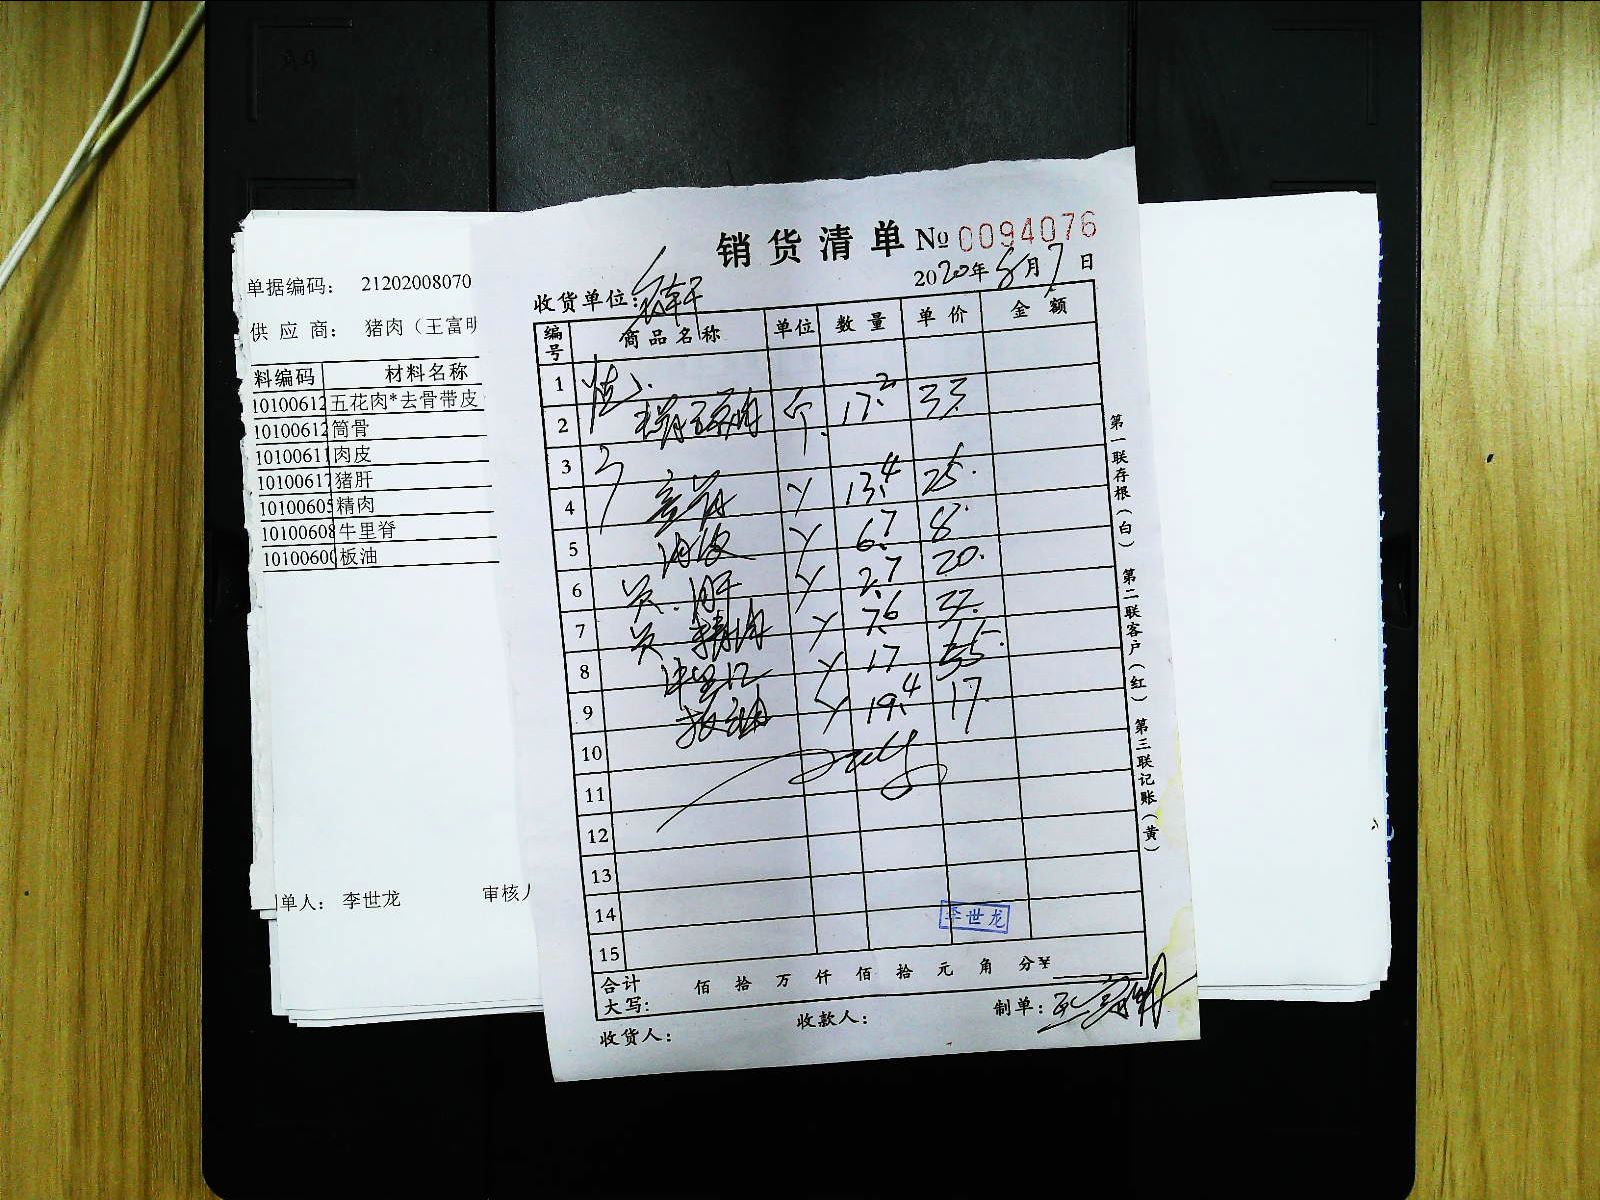 单据编码： 21202008070
供 应 商： 猪肉（王富明
料编码 材料名称
10100612 五花肉*去骨带皮
10100612 筒骨
1010061 肉皮
1010061 猪肝
1010060 精肉
10100608 牛里脊
1010060 板油
单人： 李世龙 审核人
销货清单 № 0094076
2020年8月7日
收货单位：
编号 商品名称 单位 数量 单价 金额
1
2 五花肉 个 17.2 33.
3
4 13.4 25.
5 肉皮 6.7 8.
6 肝 2.7 20.
7 精肉 7.6 32.
8 牛里 17 55.
9 板油 19.4 17.
10
11
12
13
14
15
李世龙
合计大写： 佰 拾 万 仟 佰 拾 元 角 分 ¥
收货人： 收款人： 制单：王富明
第一联存根（白） 第二联客户（红） 第三联记账（黄）